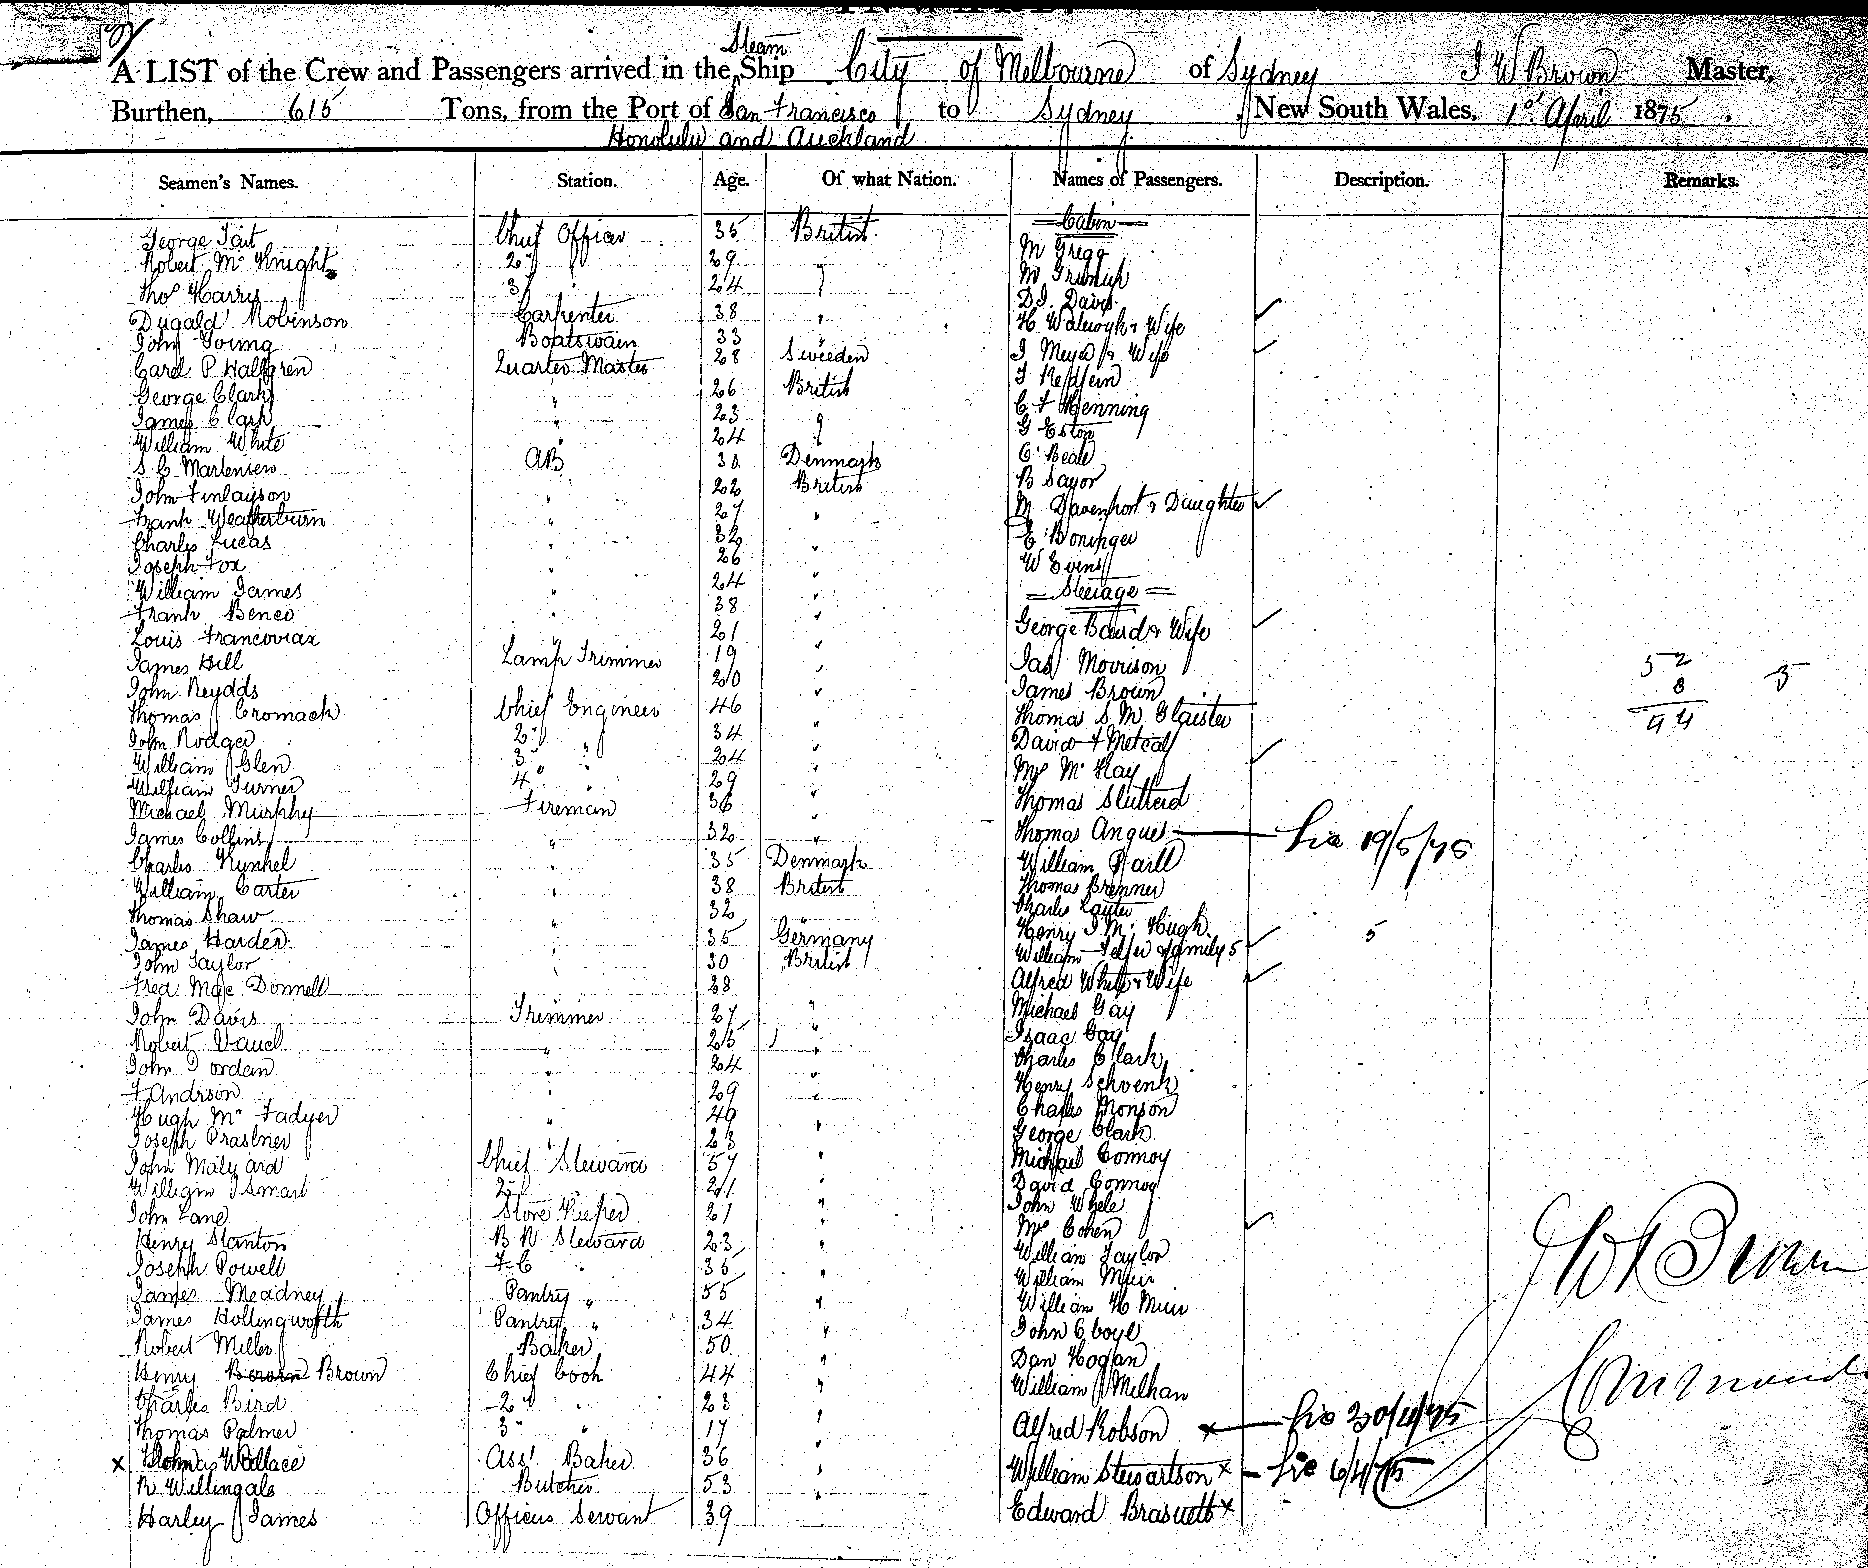 A LIST of the Crew and Passengers arrived in the Steam Ship City of Melbourne of Sydney J W Brown Master,
Burthen, 615 Tons, from the Port of San Francisco to Sydney, New South Wales, 1st April 1875.
Honolulu and Auckland
Seamen's Names. Station. Age. Of what Nation. Names of Passengers. Description. Remarks.
Cabin
George Tait Chief Officer 35 British Mr Gregg
Robert McKnight 2d " 29 "
Thos Harris 3d " 24 " D. J. Davis
Dugald Robinson Carpenter 38 " & Wife
John Young Boatswain 33 " J Meyer & Wife
Carel P Hallgren Quarter Master 28 Sweeden
George Clark " 26 British C F Henning
James Clark " 23 " G Eston
William White " 24 " C Beale
S. C. Martensen AB 30 Denmark B Sayor
John Finlayson " 22 British M Davenport & Daughter
Frank Weatherburn " 27 " E Boninger
Charles Lucas " 32 " W Evins
Joseph Fox " 26 "
Steerage
William James " 24 " George Baird & Wife
Frank Beneo " 38 " Jas Morrison
Louis Francoviax " 21 " James Brown
James Hill Lamp Trimmer 19 " Thomas S. M. Glaister
John Reydds 20 " David F Metcalf
Thomas Cromack Chief Engineer 46 " Mrs McKay
John Rodger 2d " 34 " Thomas Slutterd
William Glen 3d " 24 " Thomas Angue Lic 19/5/75
William Turner 4 " 29 " William Haill
Michael Murphy Fireman 36 " Thomas Brenner
James Collins " 32 " Charles Layter
Charles Kunkel " 35 Denmark Henry J Mc Hugh
William Carter " 38 British William Telfer & family 5 5
Thomas Shaw " 32 " Alfred White & Wife
James Harder " 35 Germany Michael Gay
John Taylor " 30 British Isaac Gay
Fred Mac Donnell 28 Charles Clark
John Davis Trimmer 27 " Henry Schvenk
Robert Vauel " 25 " Charles Monson
John Jordan " 24 " George Clark
F Andrson 29 " Michael Connoy
Hugh McFadyer " 40 " David Connoy
Joseph Prastner " 23 John Whele
John Malyard Chief Steward 57 " Mrs Cohen
William J Smart 2d " 21 " William Taylor
John Lane Store Keeper 21 " William Muir
Henry Stanton B R Steward 23 " William H Muir
Joseph Powell F C " 36 " John C boyle
James Meadney Pantry " 55 " Dan Hogan
James Hollingworth Pantry " 34 " William Melhan
Robert Miller Baker 50 " Alfred Robson x Lic 30/4/75
Henry Brown Chief Cook 44 " William Stewartson x Lic 6/4/75
Charles Bird 2d " 23 " Edward Brasnett x
Thomas Palmer 3d " 17 "
x Thomas Wallace Asst Baker 36 "
R Willingale Butcher 53 "
Harley James Officers Servant 39
52 5
8
94
J W Brown
Commander